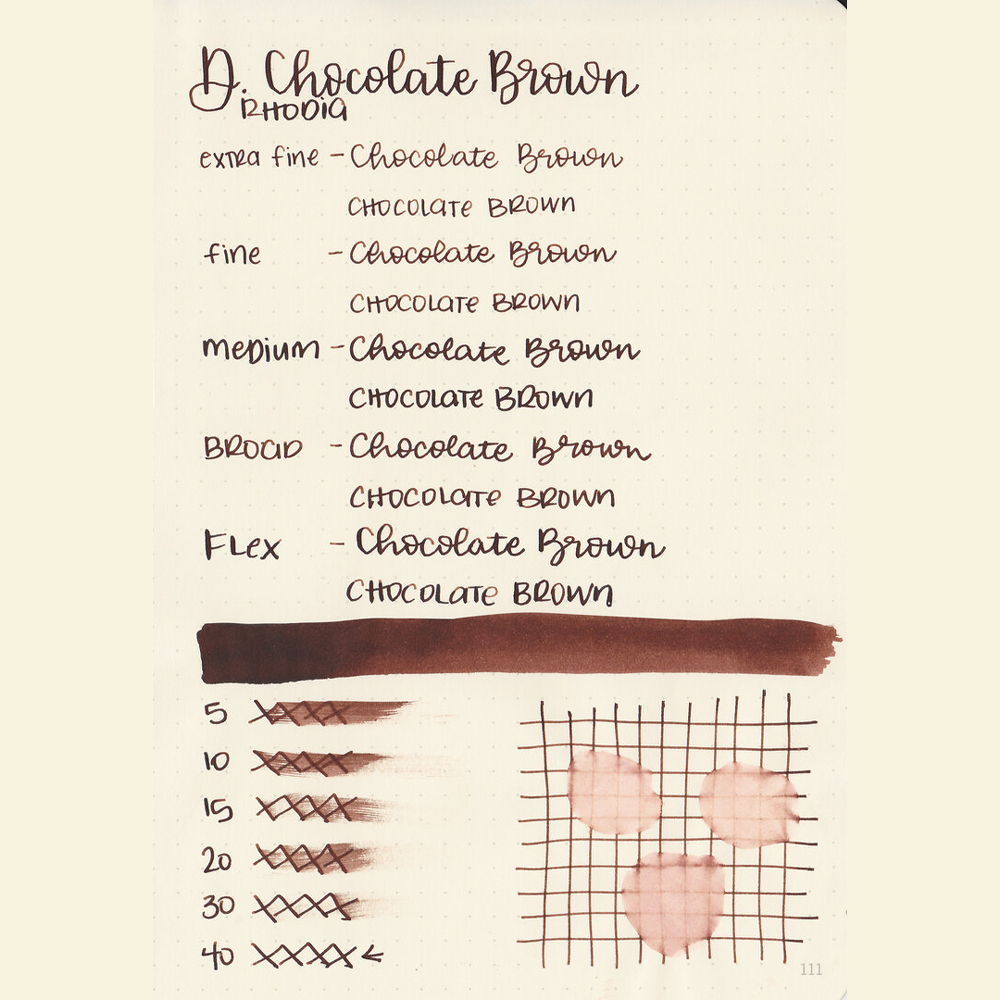 D. Chocolate Brown
RHODIA
extra fine - Chocolate Brown
CHOCOLATE BROWN
fine - Chocolate Brown
CHOCOLATE BROWN
medium - Chocolate Brown
CHOCOLATE BROWN
BROAD - Chocolate Brown
CHOCOLATE BROWN
FLex - Chocolate Brown
CHOCOLATE BROWN
5 XXXX
10 XXXX
15 XXXX
20 XXXX
30 XXXX
40 XXXX ←
111